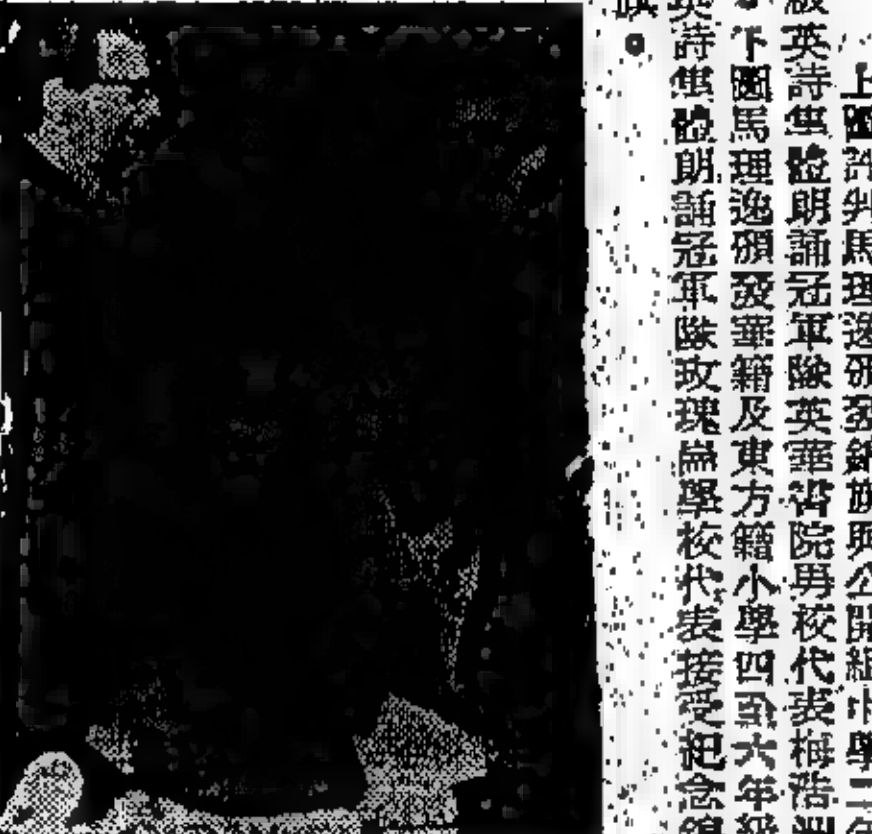 上圖評判馬理逸頒發錦旗與公開組中學二年
級英詩集體朗誦冠軍隊英華書院男校代表梅浩洲
下圖馬理逸頒發華籍及東方籍小學四至六年級
英詩集體朗誦冠軍隊玫瑰崗學校代表接受紀念錦
旗。